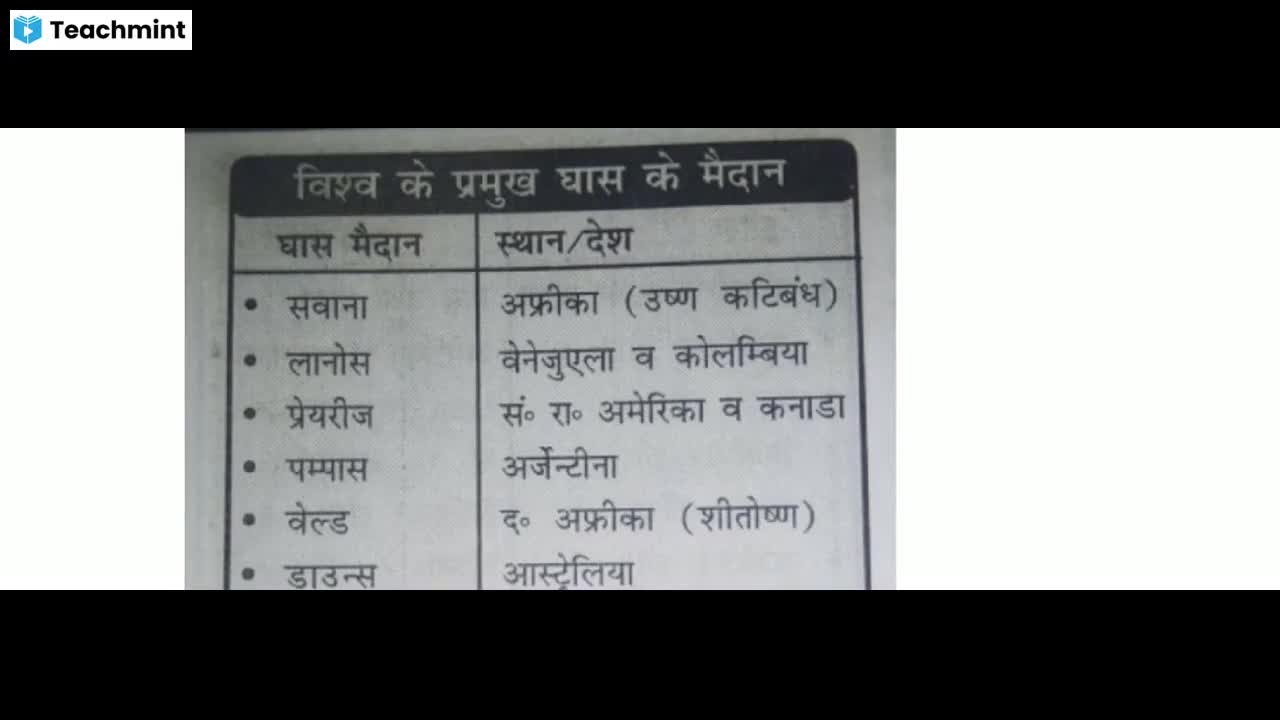 Teachmint
विश्व के प्रमुख घास के मैदान
घास मैदान स्थान/देश
• सवाना अफ्रीका (उष्ण कटिबंध)
• लानोस वेनेजुएला व कोलम्बिया
• प्रेयरीज सं॰ रा॰ अमेरिका व कनाडा
• पम्पास अर्जेन्टीना
• वेल्ड द॰ अफ्रीका (शीतोष्ण)
• डाउन्स आस्ट्रेलिया